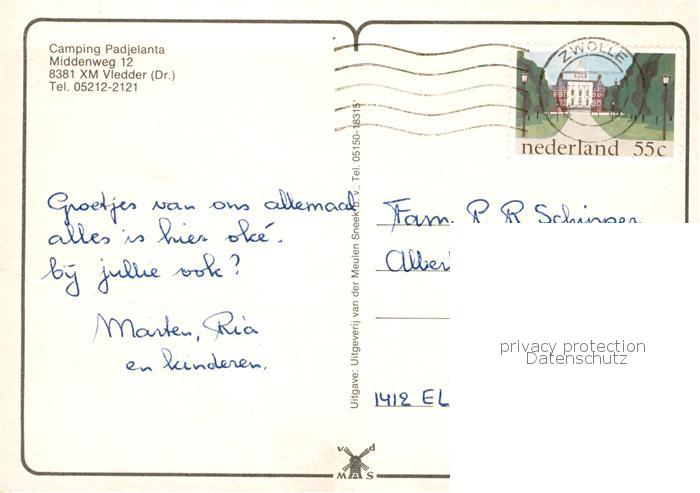 Camping Padjelanta
Middenweg 12
8381 XM Vledder (Dr.)
Tel. 05212-2121
ZWOLLE
nederland 55c
Groetjes van ons allemaal
alles is hier oké.
bij jullie ook?
Marten, Ria
en kinderen.
Uitgave: Uitgeverij van der Meulen Sneek b.v., Tel. 05150-18315
Fam. P. R. Schipper
Alber
1412 EL
privacy protection
Datenschutz
v d
MAS